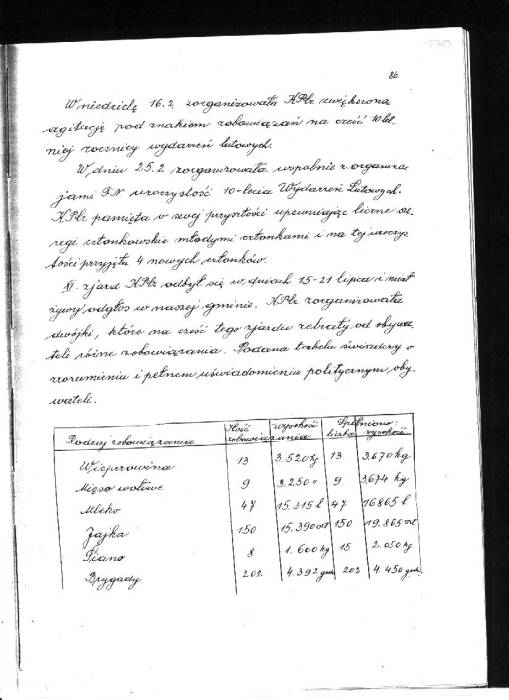 170
86.
W niedzielę 16.2. zorganizowała KPCz zwiększoną
agitację pod znakiem zobowiązań na cześć 10 let-
niej rocznicy wydarzeń lutowych.
W dniu 25.2 zorganizowała wspólnie z organiza-
cjami FN uroczystość 10-lecia Wydarzeń Lutowych.
KPCz pamięta o swej przyszłości upewniając liczne sze-
regi członkowskie młodymi członkami i na tej uroczys-
tości przyjęła 4 nowych członków.
XI. zjazd KPCz odbył się w dniach 15-21 lipca i miał
żywy odgłos w naszej gminie. KPCz zorganizowała
dwójki, które na cześć tego zjazdu zebrały od obywa-
teli różne zobowiązania. Podana tabela świadczy o
zrozumieniu i pełnem uświadomieniu politycznym oby-
wateli.
Rodzaj zobowiązania Ilość zobowiązania wysokość Spełniono: liczba wysokość
Wieprzowina 13 3.520 kg 13 3.670 kg
Mięso wołowe 9 3.250 " 9 3674 kg
Mleko 47 15.315 l 47 16865 l
Jajka 150 15.390 szt 150 19.865 szt
Siano 8 1.600 kg 15 2.050 kg
Brygady 202 4.392 godz. 202 4.450 godz.